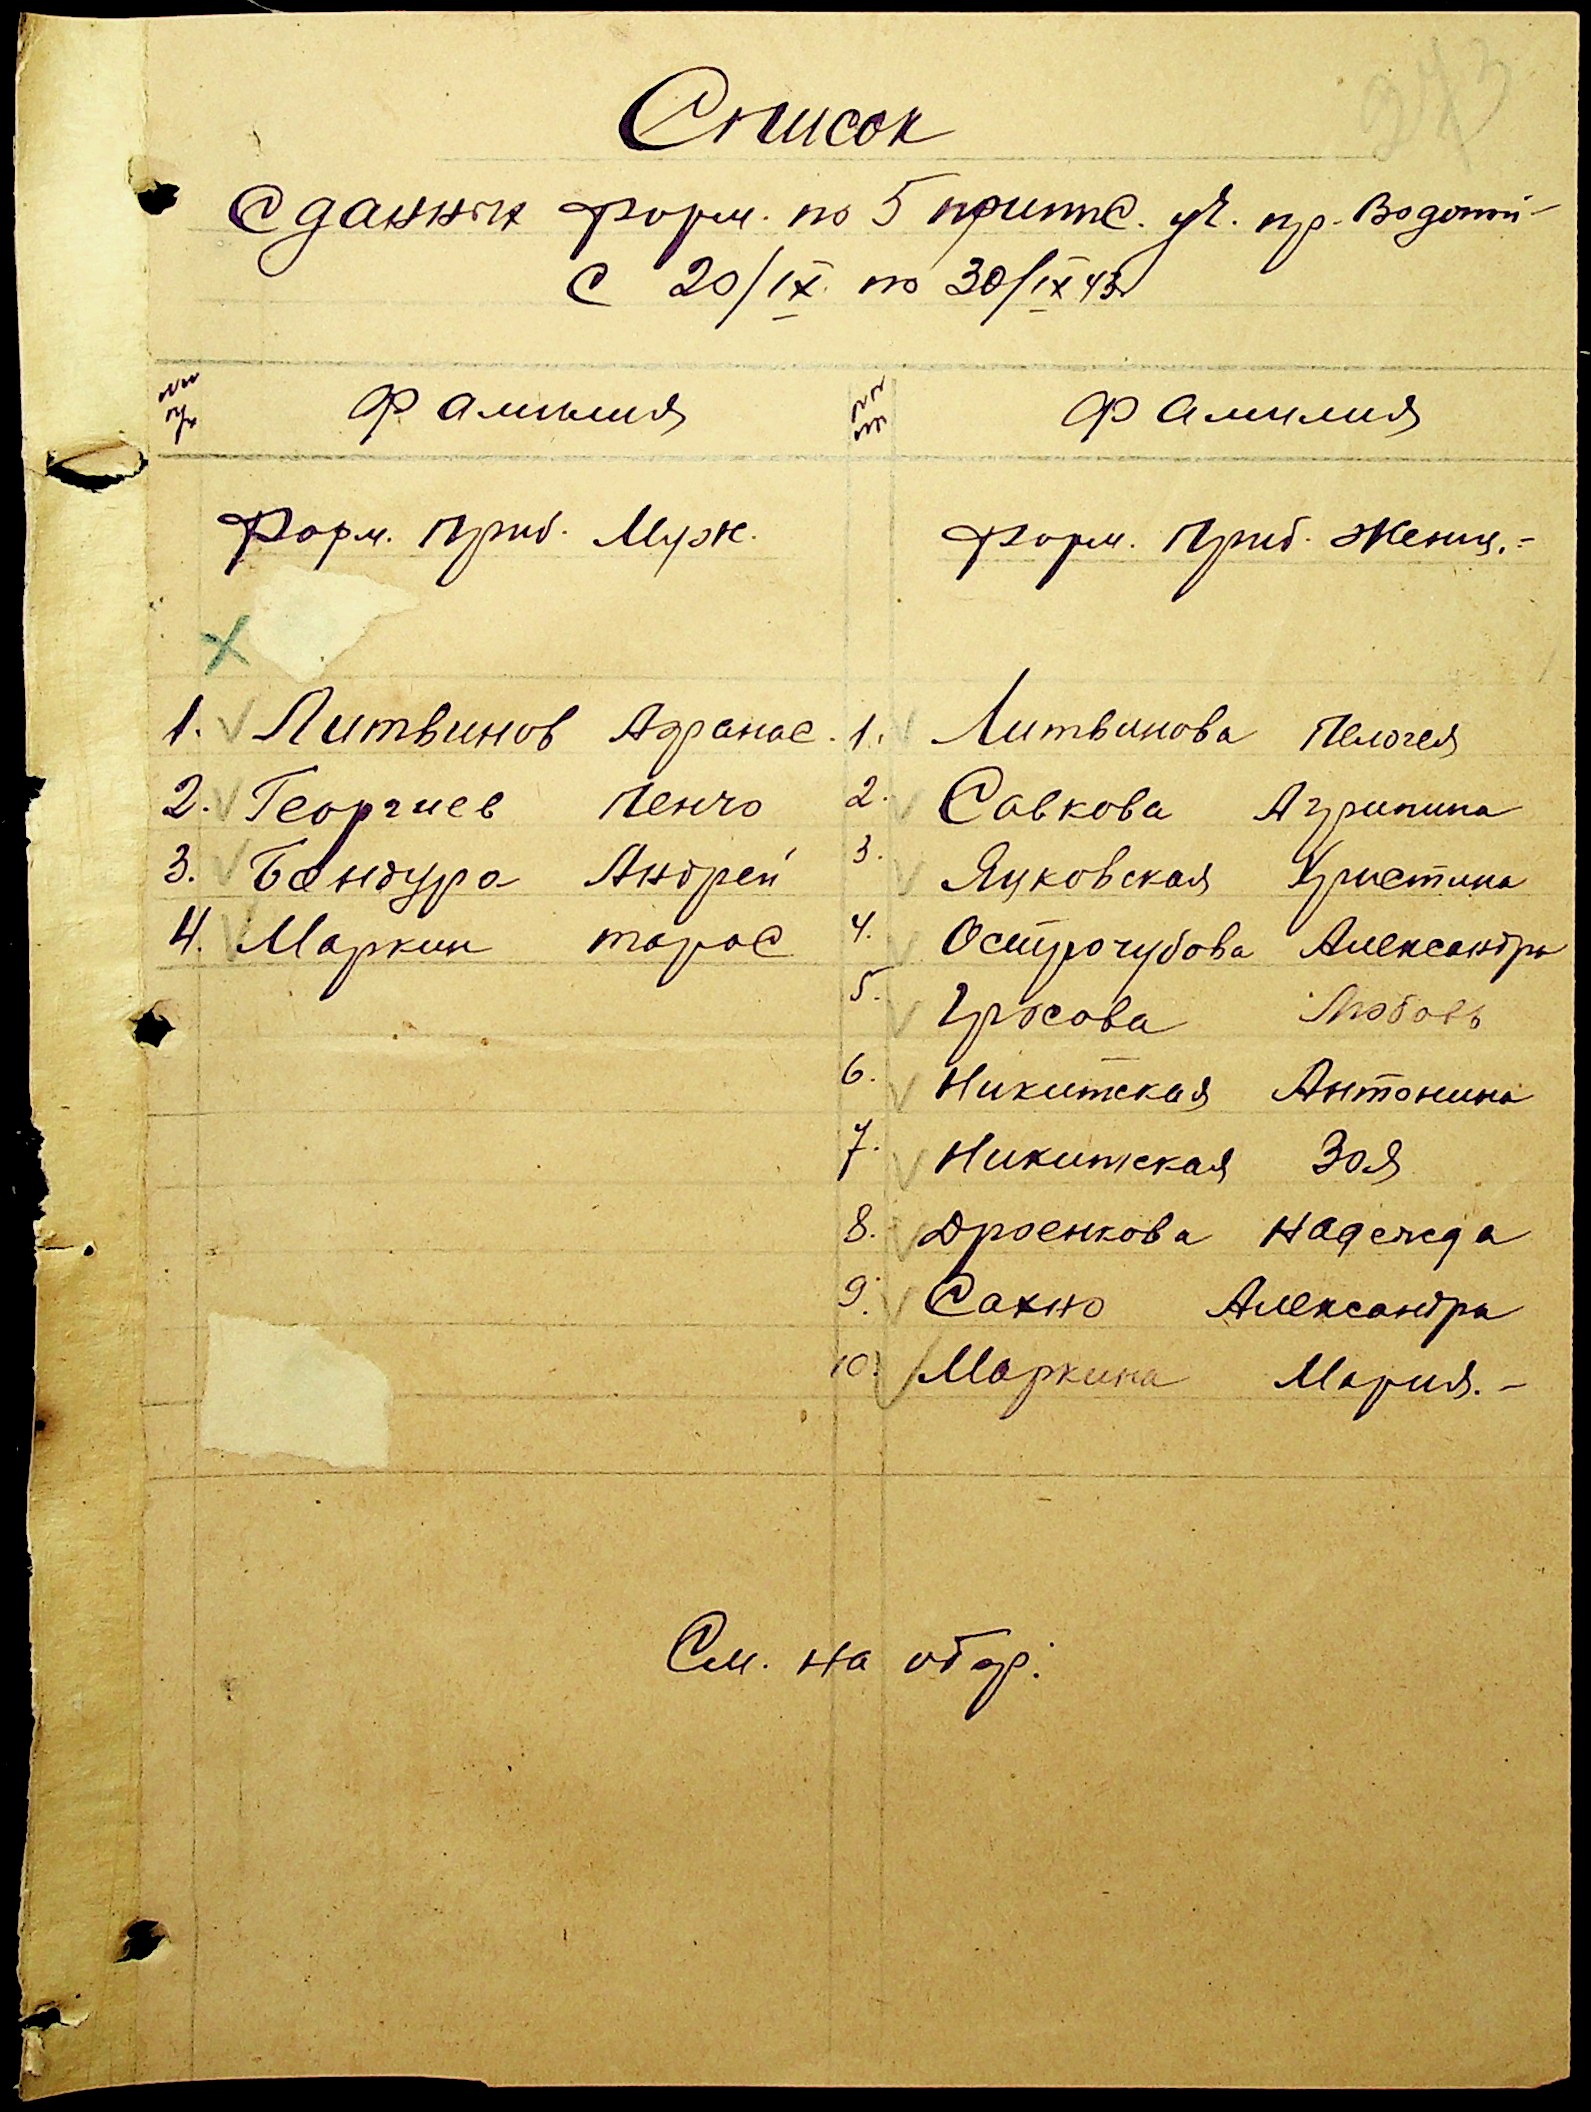 Список
Сданных форм. по 5 припис. уч. пр. Водопой-
С 20/IX по 30/IX 43
№№ Фамилия №№ Фамилия
Форм. Приб. Муж. Форм. Приб. Женщ.-
1. Литвинов Афанас. 1. Литвинова Пелогея
2. Георгиев Пенчо 2. Савкова Агрипина
3. Бандура Андрей 3. Яцковская Христина
4. Маркин тарас 4. Острочубова Александра
5. Гросова Любовь
6. Никитская Антонина
7. Никитская Зоя
8. Дроенкова Надежда
9. Сахно Александра
10. Маркина Мария.-
См. на обор: